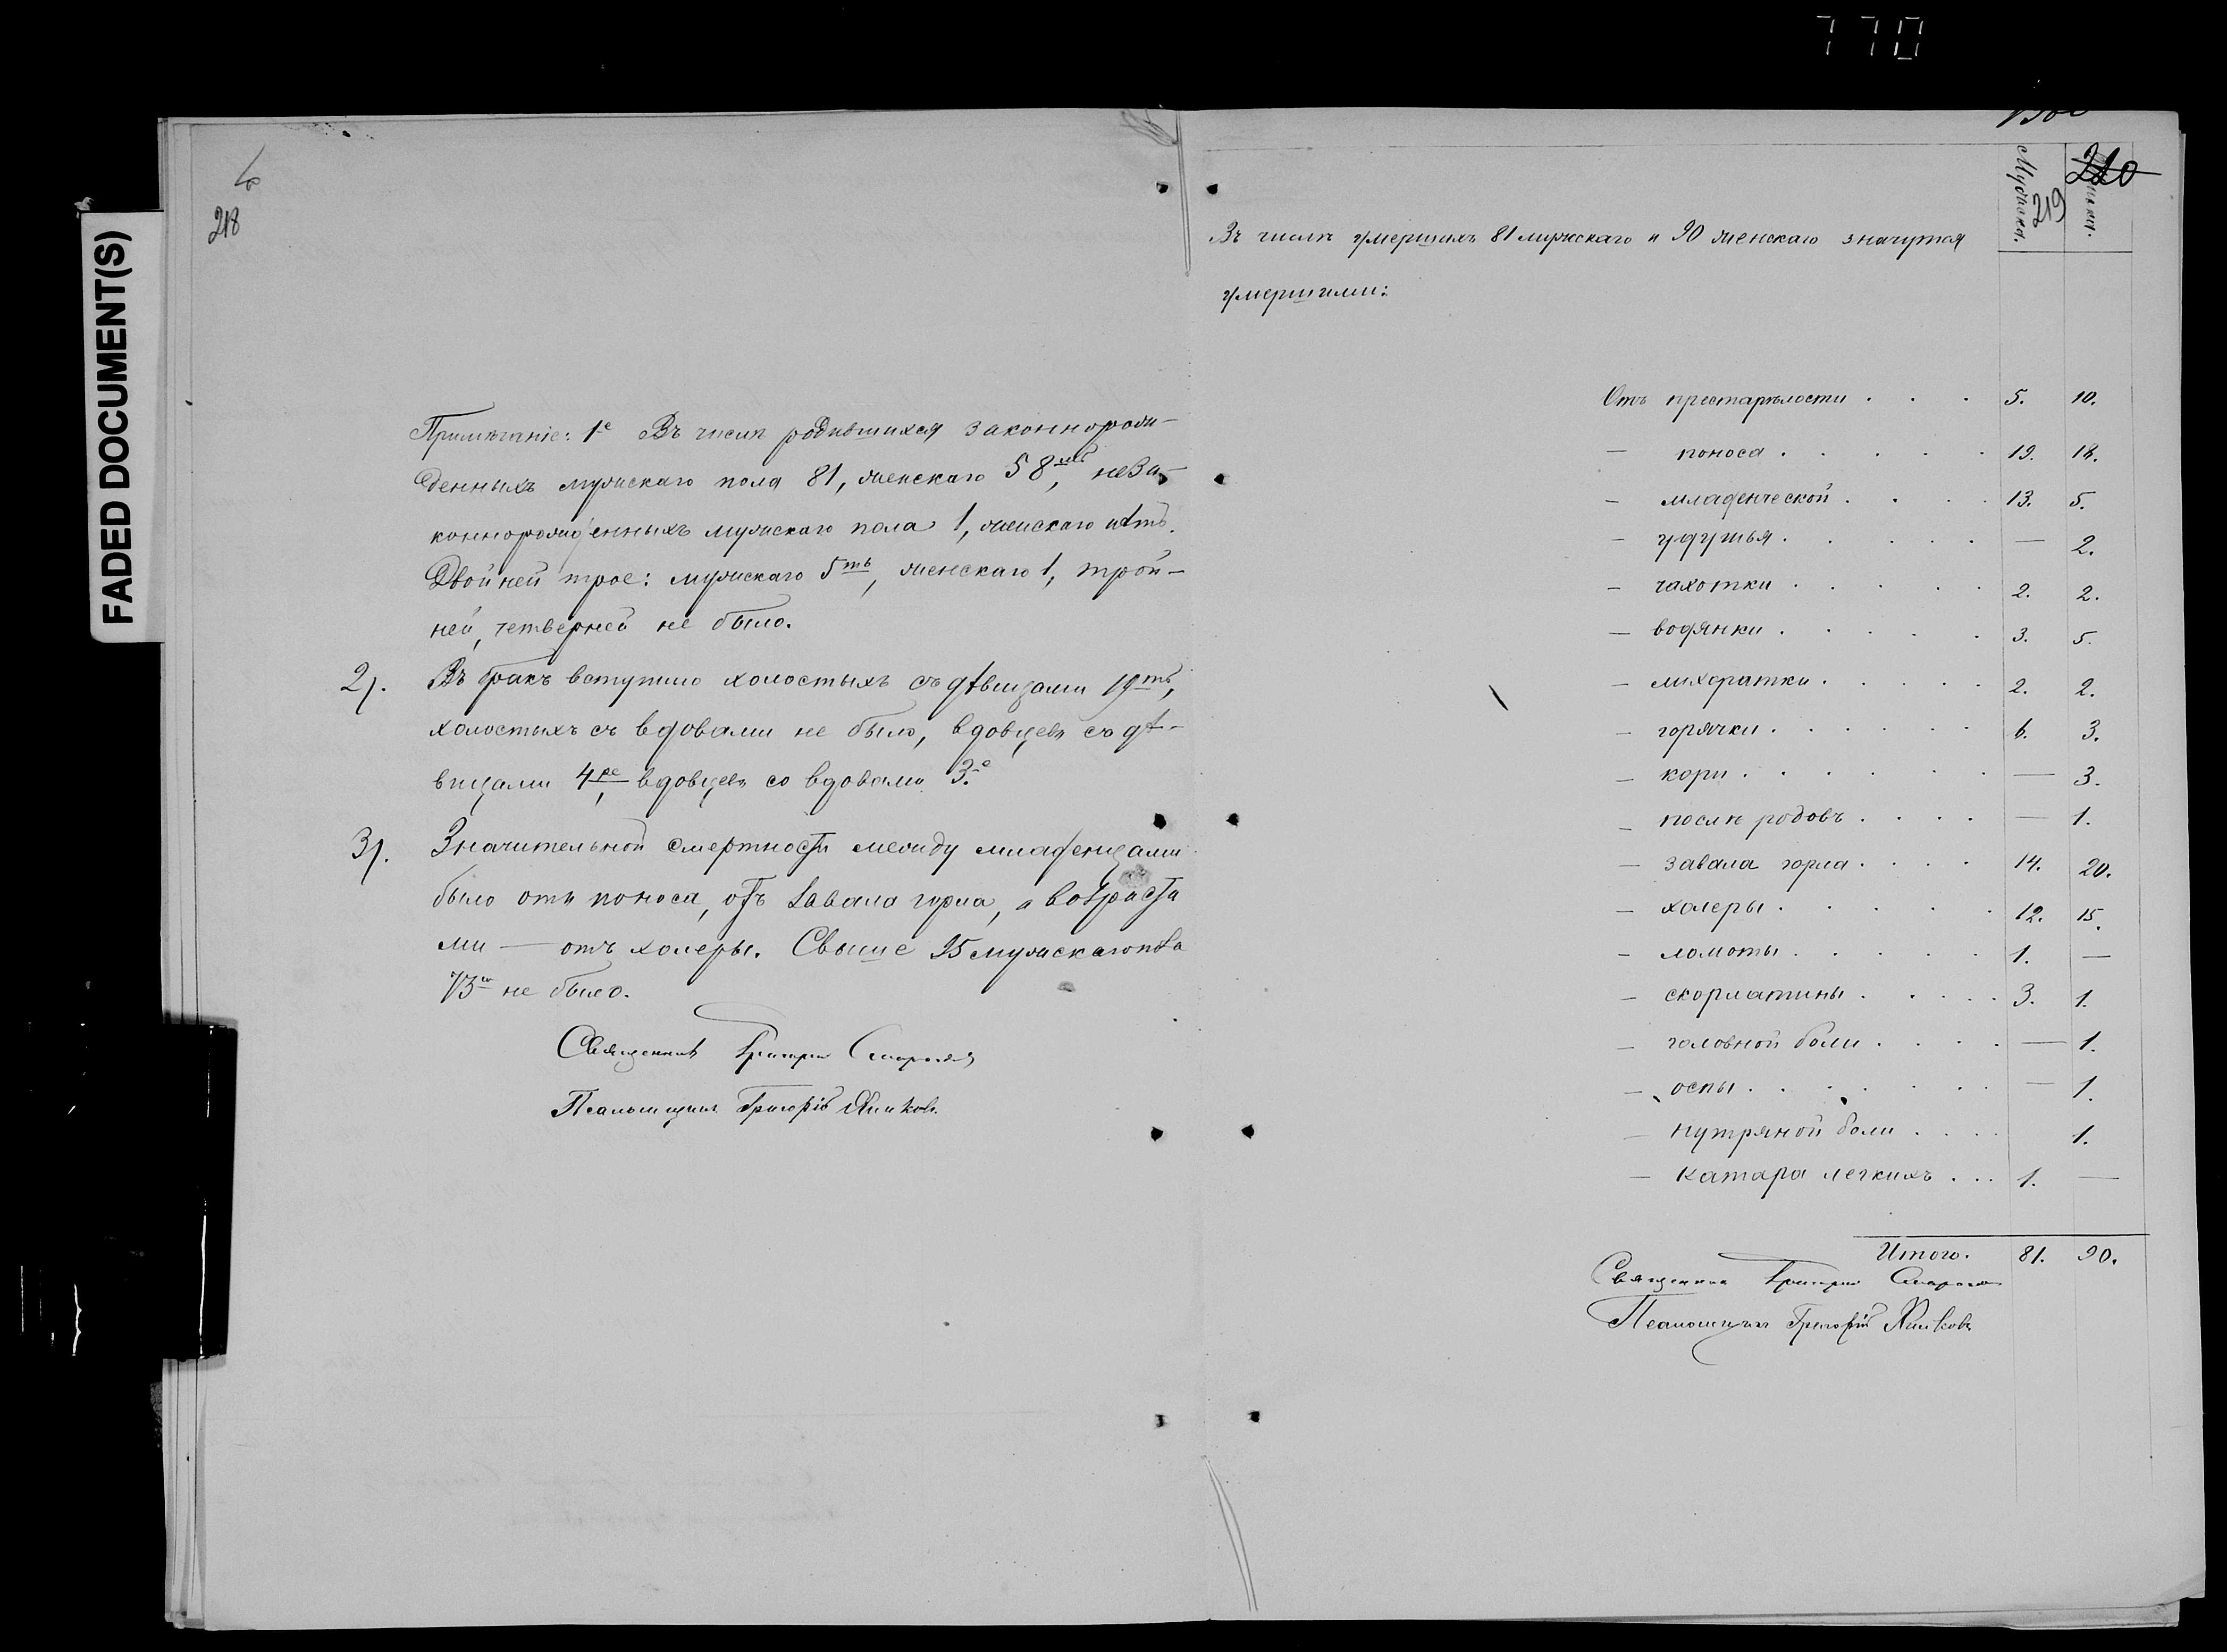 770
FADED DOCUMENT(S)
218
Примѣчаніе: 1е Въ числѣ родившихся законнорож-
денныхъ мужскаго пола 81, женскаго 58мь, неза-
коннорожденныхъ мужскаго пола 1, женскаго нѣтъ.
Двойней трое: мужскаго 5ть, женскаго 1, трой-
ней, четверней не было.
2). Въ бракъ вступило холостыхъ съ дѣвицами 19ть,
холостыхъ съ вдовами не было, вдовцевъ съ дѣ-
вицами 4ре, вдовцевъ со вдовами 3.е
3). Значительной смертности между младенцами
было отъ поноса, отъ завала горла, а возраста
ми — отъ холеры. Свыше 95 мужскаго пола
не было.
Священникъ Григорій
Псаломщикъ Григорій
220
219
Мужска.
Въ числѣ умершихъ 81 мужскаго и 90 женскаго значутся
умершими:
Отъ престарѣлости . . . 5. 10.
— поноса . . . . . 19. 18.
— младенческой . . . . 13. 5.
— удушья . . . . . — 2.
— чахотки . . . . . 2. 2.
— водянки . . . . . 3. 5.
— лихоратки . . . . . 2. 2.
— горячки . . . . . . 6. 3.
— кори . . . . . . — 3.
— послѣ родовъ . . . . — 1.
— завала горла . . . . 14. 20.
— холеры . . . . . 12. 15.
— ломоты . . . . . 1. —
— скорлатины . . . . . 3. 1.
— головной боли . . . . — 1.
— оспы . . . . . . — 1.
— нутряной боли . . . . 1.
— катара легкихъ . . . 1. —
Итого. 81. 90.
Священникъ Григорій
Псаломщикъ Григорій